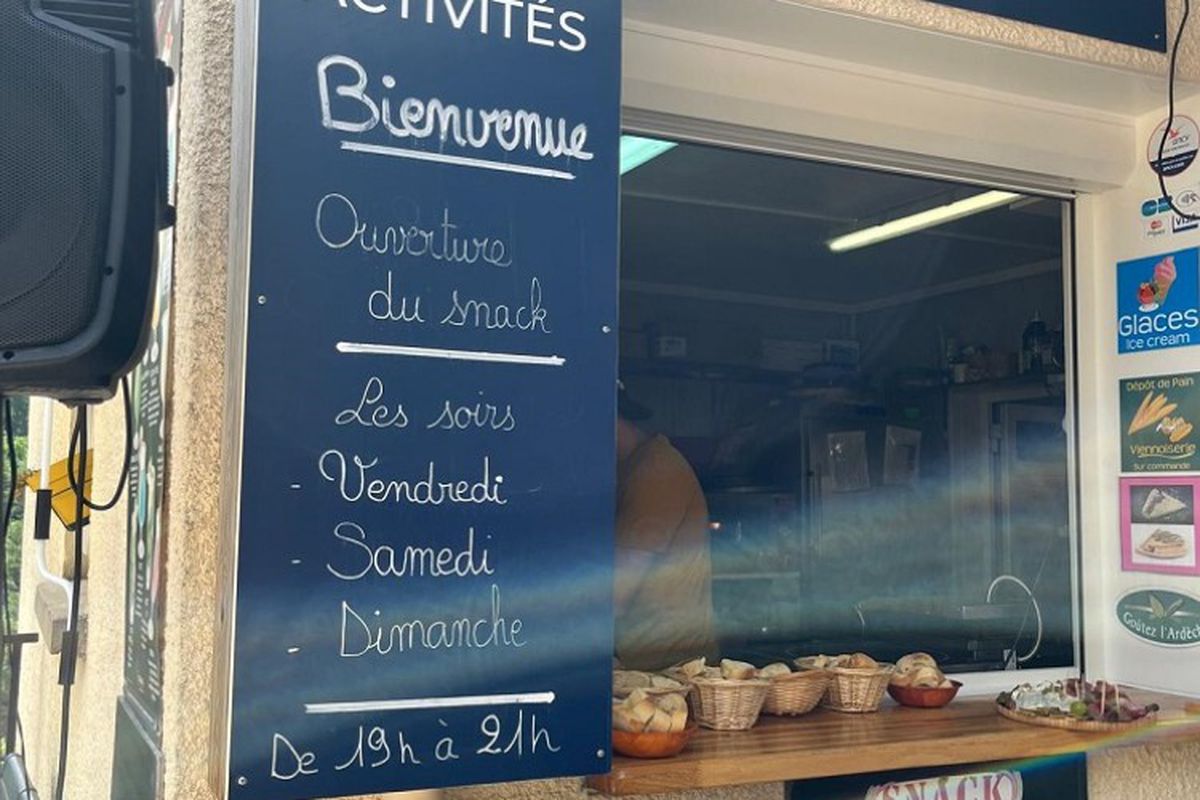 ACTIVITÉS
Bienvenue
Ouverture
du snack
Les soirs
- Vendredi
- Samedi
- Dimanche
De 19h à 21h
VISA
Glaces
Ice cream
Dépôt de Pain
Viennoiserie
Sur commande
Goûtez l'Ardèch
SNACK